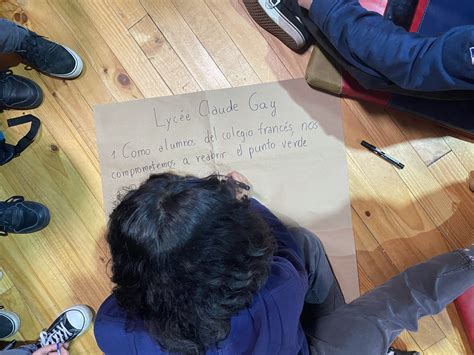 Lycée Claude Gay
1. Como alumnos del colegio francés, nos
comprometemos a reabrir el punto verde